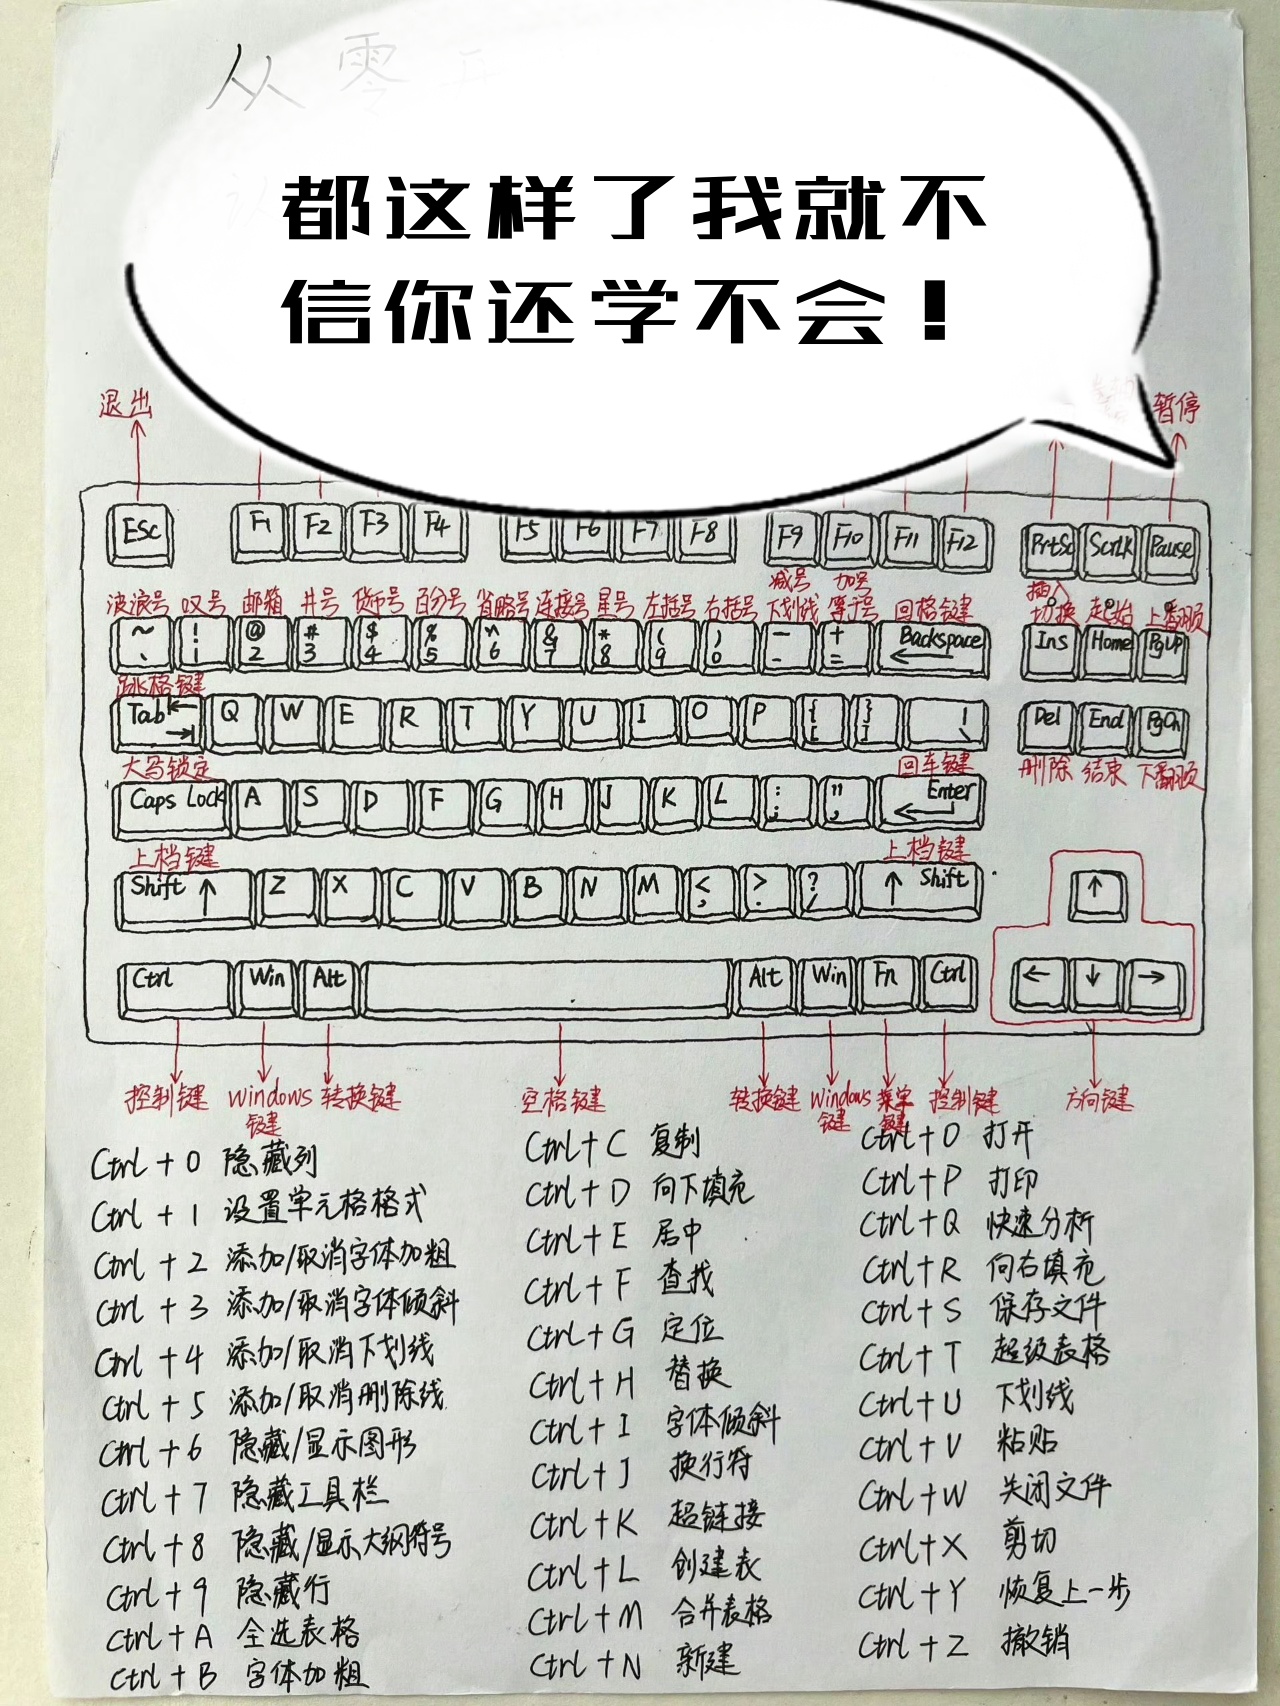 从零
都这样了我就不
信你还学不会！
退出
暂停
Esc F1 F2 F3 F4 F5 F6 F7 F8 F9 F10 F11 F12 PrtSc ScrLK Pause
波浪号 叹号 邮箱 井号 货币号 百分号 省略号 连接号 星号 左括号 右括号 减号 下划线 加号 等于号 回格键 插入 切换 起始 上翻页
~ ! @ # $ % ^ & * ( ) - + Backspace Ins Home PgUp
、 1 2 3 4 5 6 7 8 9 0 - =
跳格键
Tab Q W E R T Y U I O P { } | Del End PgDn
[ ] \
大写锁定 回车键 删除 结束 下翻页
Caps Lock A S D F G H J K L : " Enter
; ,
上档键 上档键
Shift ↑ Z X C V B N M < > ? ↑ Shift ↑
, . /
Ctrl Win Alt Alt Win Fn Ctrl ← ↓ →
控制键 Windows键 转换键 空格键 转换键 Windows键 菜单键 控制键 方向键
Ctrl + 0 隐藏列
Ctrl + 1 设置单元格格式
Ctrl + 2 添加/取消字体加粗
Ctrl + 3 添加/取消字体倾斜
Ctrl + 4 添加/取消下划线
Ctrl + 5 添加/取消删除线
Ctrl + 6 隐藏/显示图形
Ctrl + 7 隐藏工具栏
Ctrl + 8 隐藏/显示大纲符号
Ctrl + 9 隐藏行
Ctrl + A 全选表格
Ctrl + B 字体加粗
Ctrl + C 复制
Ctrl + D 向下填充
Ctrl + E 居中
Ctrl + F 查找
Ctrl + G 定位
Ctrl + H 替换
Ctrl + I 字体倾斜
Ctrl + J 换行符
Ctrl + K 超链接
Ctrl + L 创建表
Ctrl + M 合并表格
Ctrl + N 新建
Ctrl + O 打开
Ctrl + P 打印
Ctrl + Q 快速分析
Ctrl + R 向右填充
Ctrl + S 保存文件
Ctrl + T 超级表格
Ctrl + U 下划线
Ctrl + V 粘贴
Ctrl + W 关闭文件
Ctrl + X 剪切
Ctrl + Y 恢复上一步
Ctrl + Z 撤销